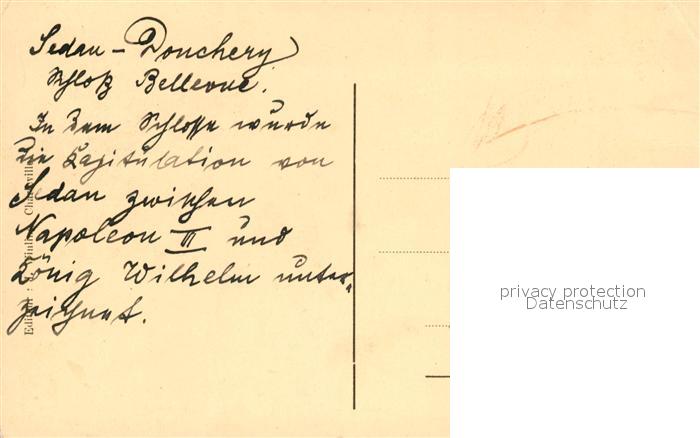 Sedan - Donchery
Schloß Bellevue.
In dem Schlosse wurde
die Kapitulation von
Sedan zwischen
Napoleon III und
König Wilhelm unter-
zeichnet.
privacy protection
Datenschutz